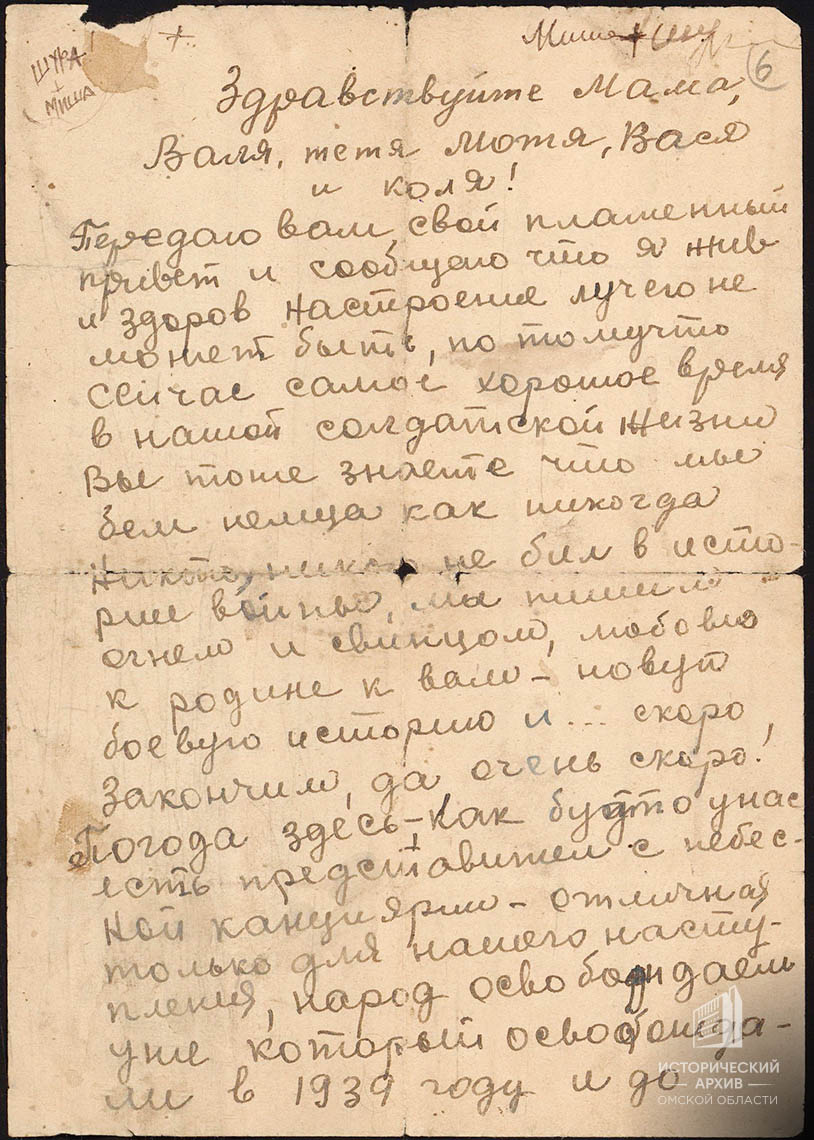 ШУРА!
+
МИША
+
Миша +
6
Здравствуйте Мама,
Валя, тетя Мотя, Вася
и Коля!
Передаю вам свой пламенный
привет и сообщаю что я жив
и здоров настроение лучего не
может быть, по томучто
сейчас самое хорошое время
в нашой солдатской жизни
Вы тоже знаете что мы
бем немца как никогда
Никто, никого не бил в исто-
рии войны, мы пишим
огнем и свинцом, любовю
к родине к вам – новую
боевую историю и... скоро,
закончим, да очень скоро!
Погода здесь, как будто унас
есть представители с небес-
ной канцилярии – отличная
только для нашего насту-
пления, народ освобождаем
уже который освобожда-
ли в 1939 году и до
ИСТОРИЧЕСКИЙ
АРХИВ
ОМСКОЙ ОБЛАСТИ